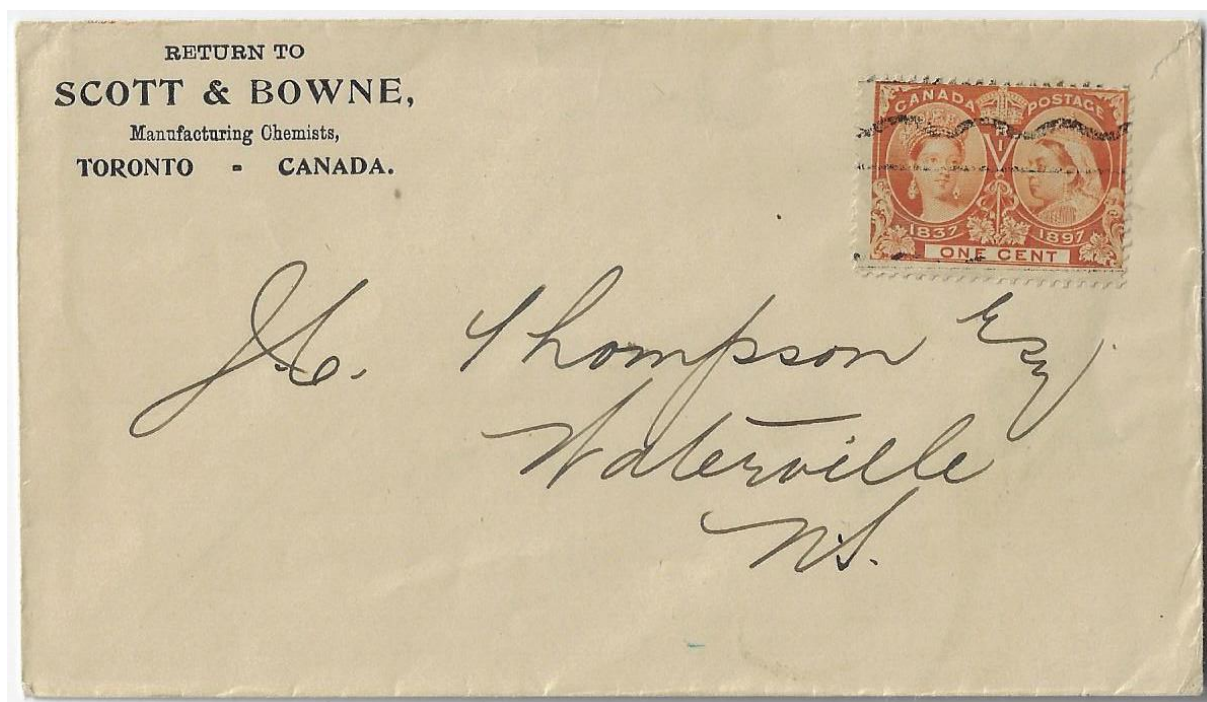 RETURN TO
SCOTT & BOWNE,
Manufacturing Chemists,
TORONTO - CANADA.
CANADA POSTAGE
VRI
1837 1897
ONE CENT
J.C. Thompson Esq
Waterville
N.S.